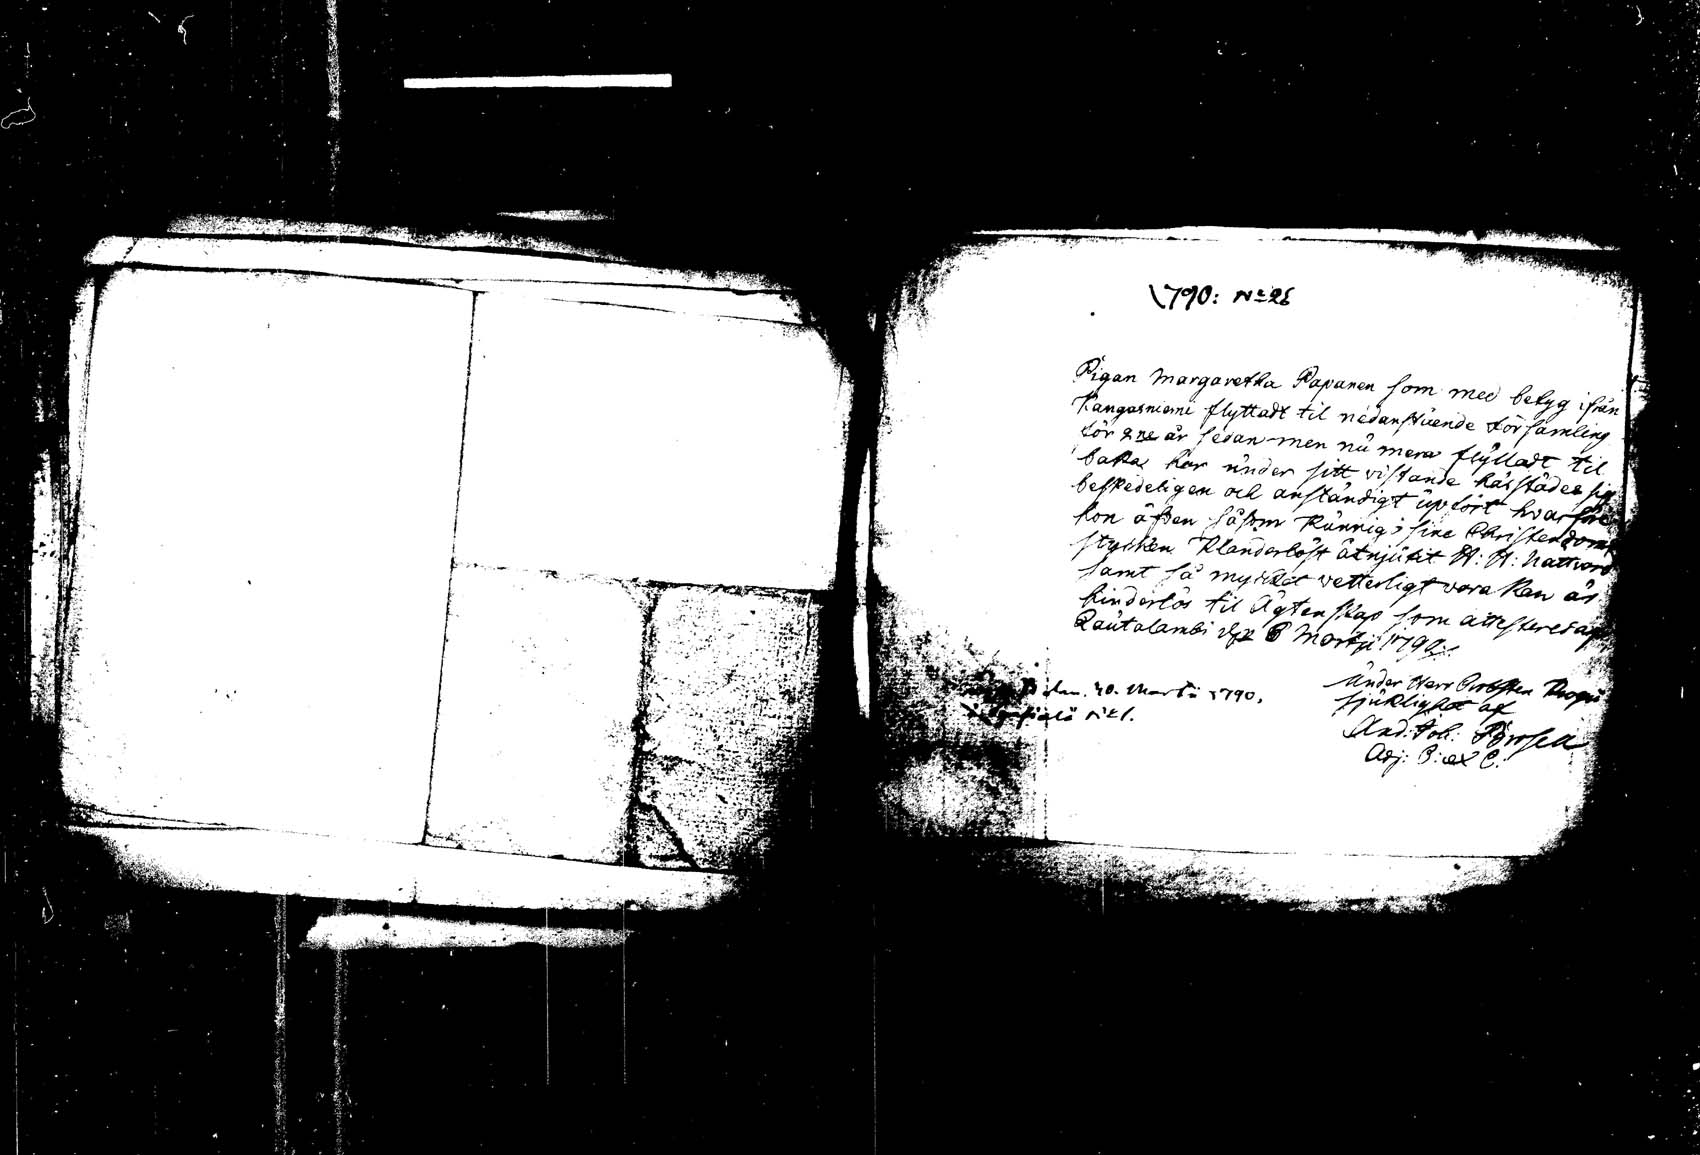 1790: No 26
Pigan Margaretha Papanen som med betyg ifrån
Kangasniemi flyttadt til nedanstående församling
för 2ne år sedan men nu mera flyttadt til
baka har under sitt vistande härstädes sig
beskedeligen och anständigt upfört hvarföre
hon äfven såsom kunnig i sine Christendoms
stycken klanderlöst åtnjutit H: H: Nattvard
samt så mycket vetterligt vara kan är
hinderlös til Ägtenskap som attesteras af
Rautalambi d. 6 Martji 1790.
Under Herr Probsten
sjuklighet af
And: Joh:
Adj: P: 
den 10. Martii 1790.